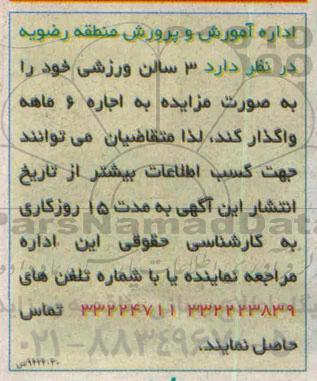 اداره آموزش و پرورش منطقه رضویه
در نظر دارد ۳ سالن ورزشی خود را
به صورت مزایده به اجاره ۶ ماهه
واگذار کند، لذا متقاضیان می توانند
جهت کسب اطلاعات بیشتر از تاریخ
انتشار این آگهی به مدت ۱۵ روزکاری
به کارشناسی حقوقی این اداره
مراجعه نماینده یا با شماره تلفن های
۳۳۲۲۲۸۳۹ ۳۳۲۲۴۷۱۱ تماس
حاصل نمایند.
ParsNamadData
۰۲۱-۸۸۳۴۹۶۷۰